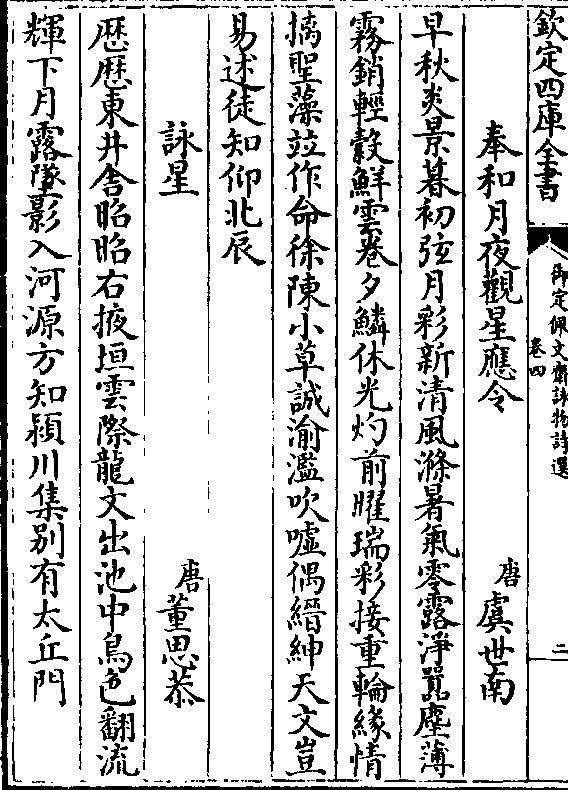 欽定四庫全書
御定佩文齋詠物詩選
卷四
二
奉和月夜觀星應令
唐虞世南
早秋炎景暮初弦月彩新清風滌暑氣零露淨囂塵薄
霧銷輕縠鮮雲卷夕鱗休光灼前曜瑞彩接重輪緣情
摛聖藻並作命徐陳小草誠渝濫吹噓偶縉紳天文豈
易述徒知仰北辰
詠星
唐董思恭
歴歴東井舍昭昭右掖垣雲際龍文出池中鳥色翻流
輝下月露墜影入河源方知潁川集别有太丘門